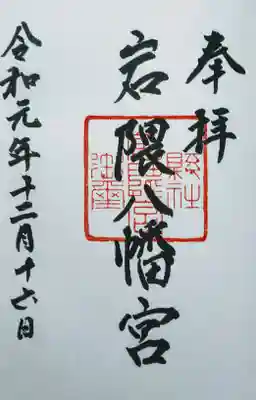 奉拝
岩隈八幡宮
令和元年十二月十六日